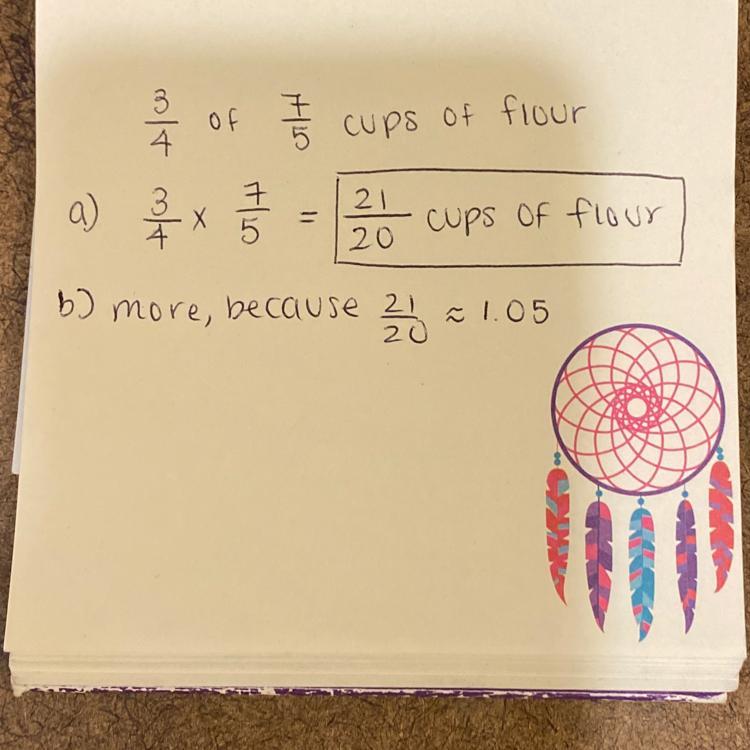 3/4 of 7/5 cups of flour
a) 3/4 x 7/5 = 21/20 cups of flour
b) more, because 21/20 ≈ 1.05